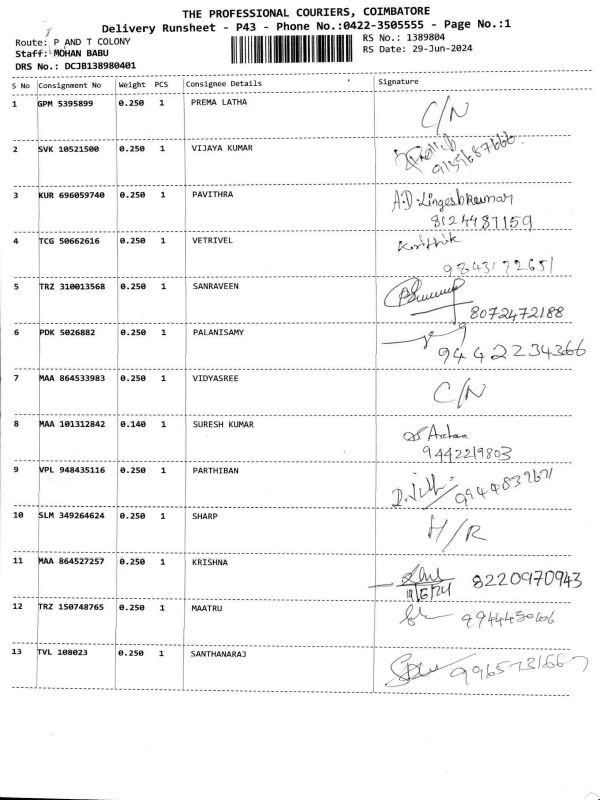 THE PROFESSIONAL COURIERS, COIMBATORE
Delivery Runsheet - P43 - Phone No.:0422-3505555 - Page No.:1
Route: P AND T COLONY
RS No.: 1389804
Staff: MOHAN BABU
RS Date: 29-Jun-2024
DRS No.: DCJB138980401
S No Consignment No Weight PCS Consignee Details Signature
1 GPM 5395899 0.250 1 PREMA LATHA C/N
2 SVK 10521500 0.250 1 VIJAYA KUMAR
3 KUR 696059740 0.250 1 PAVITHRA A.D. Lingeshkumar
8124487159
4 TCG 50662616 0.250 1 VETRIVEL Krithik
5 TRZ 310013568 0.250 1 SANRAVEEN
8072472188
6 PDK 5026882 0.250 1 PALANISAMY
9442234366
7 MAA 864533983 0.250 1 VIDYASREE C/N
8 MAA 101312842 0.140 1 SURESH KUMAR Archana
9442219803
9 VPL 948435116 0.250 1 PARTHIBAN
10 SLM 349264624 0.250 1 SHARP H/R
11 MAA 864527257 0.250 1 KRISHNA
8220970943
12 TRZ 150748765 0.250 1 MAATRU
13 TVL 108023 0.250 1 SANTHANARAJ